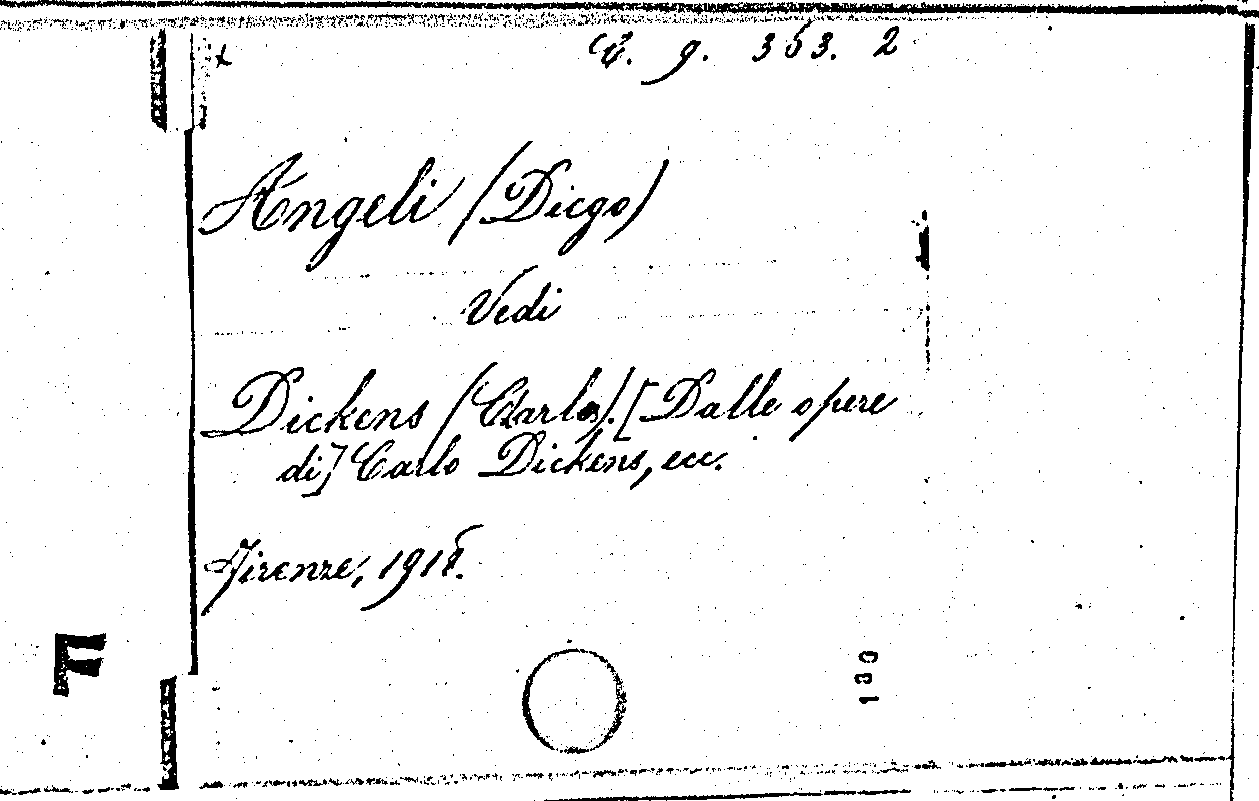 C. 9. 353. 2
Angeli (Diego)
Vedi
Dickens (Carlo). [Dalle opere
di] Carlo Dickens, ecc.
Firenze, 1918.
F